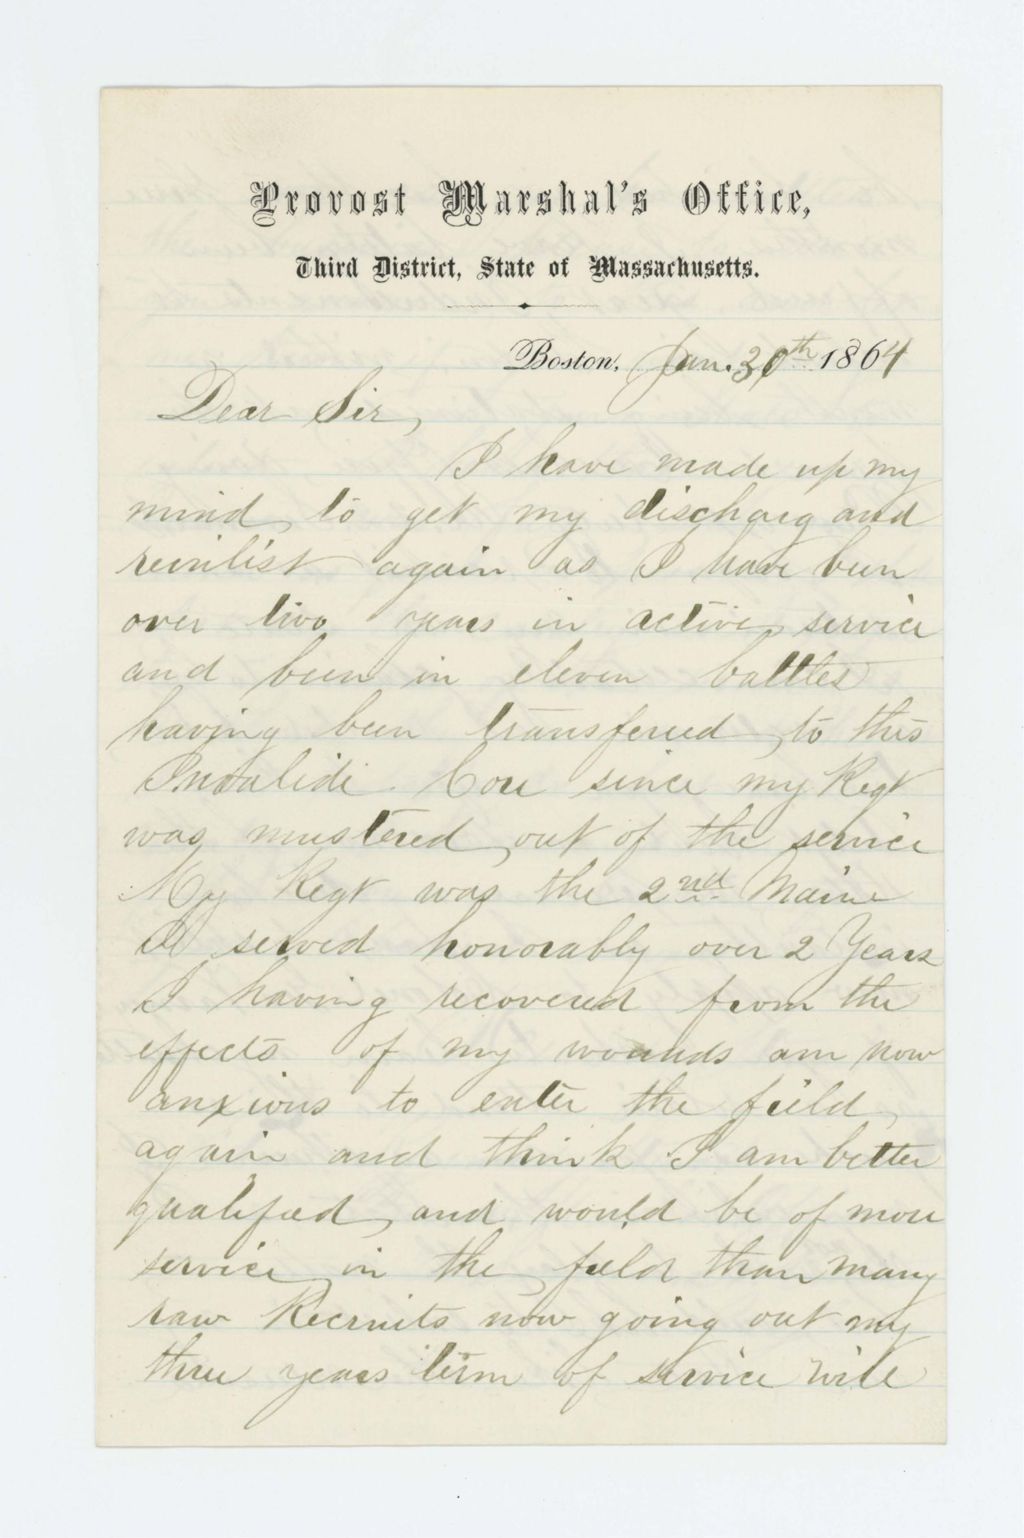 Provost Marshal's Office,
Third District, State of Massachusetts.
Boston, Jan. 30th 1864
Dear Sir,
I have made up my
mind to get my discharg and
reinlist again as I have been
over two years in active service
and been in eleven battles
having been transfered to this
Invalide Core since my Regt
was mustered out of the service
My Regt was the 2nd Maine
served honorably over 2 Years
I having recovered from the
effects of my wounds am now
anxious to enter the field
again and think I am better
qualified and would be of more
service in the field than many
raw Recruits now going out my
three years term of service will